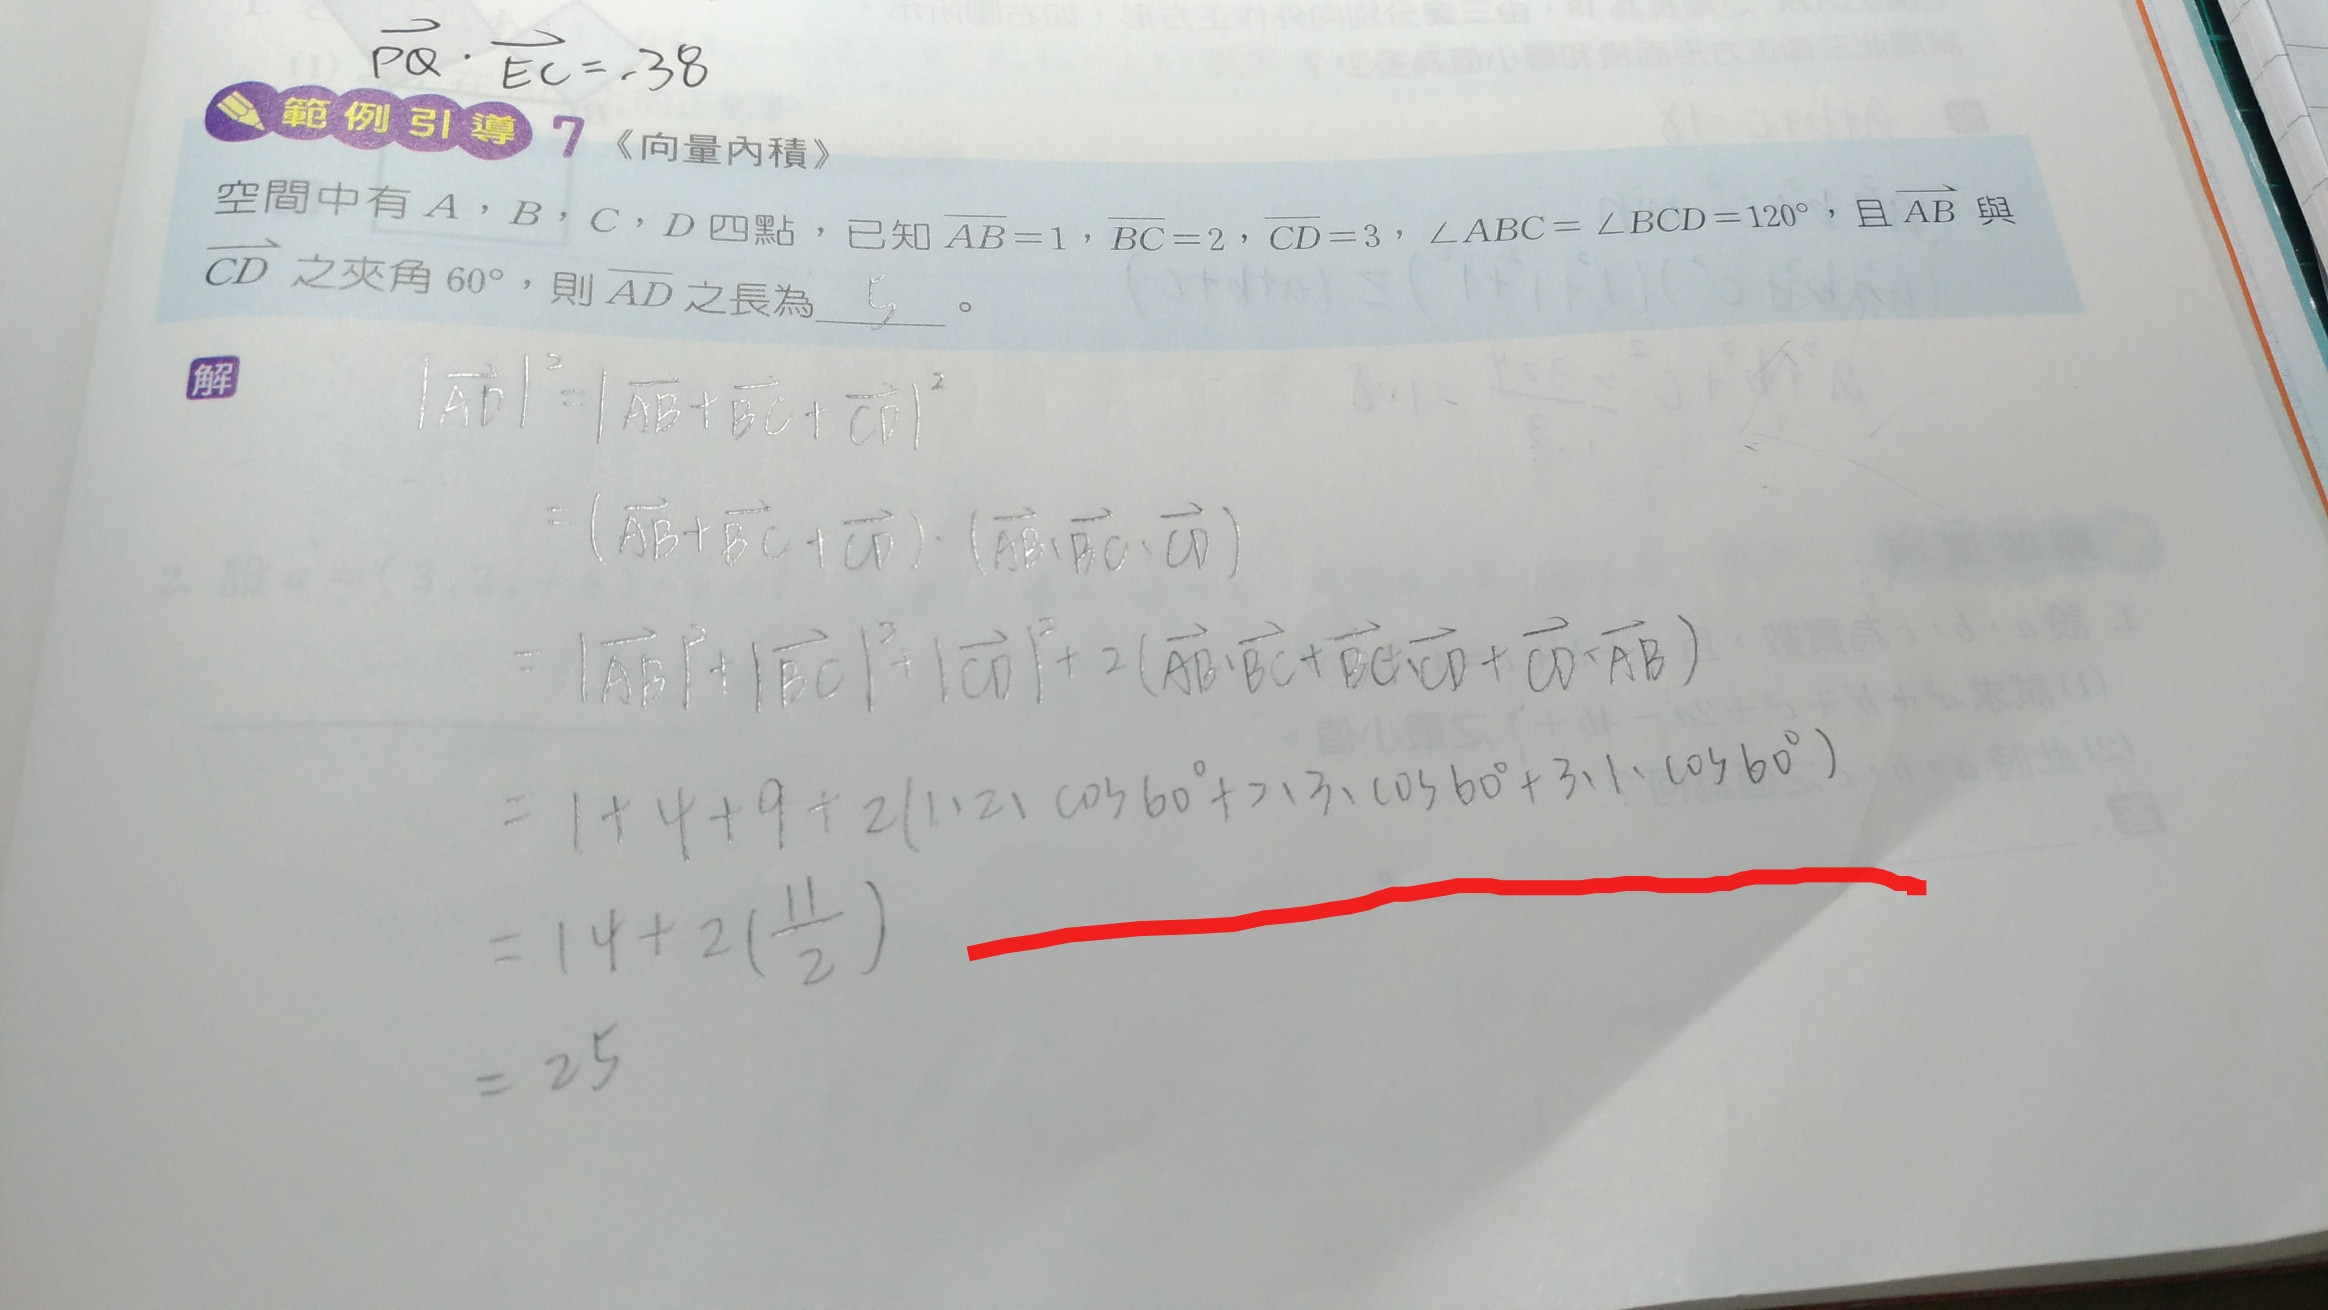 PQ · EC = -38
範例引導 7 《向量內積》
空間中有 A,B,C,D 四點,已知 AB=1,BC=2,CD=3,∠ABC=∠BCD=120°,且 AB 與
CD 之夾角 60°,則 AD 之長為 5 。
解
|AD|² = |AB+BC+CD|²
= (AB+BC+CD)·(AB·BC·CD)
= |AB|²+|BC|²+|CD|²+2(AB·BC+BC·CD+CD·AB)
= 1+4+9+2(1·2·cos60°+2·3·cos60°+3·1·cos60°)
= 14+2(11/2)
= 25